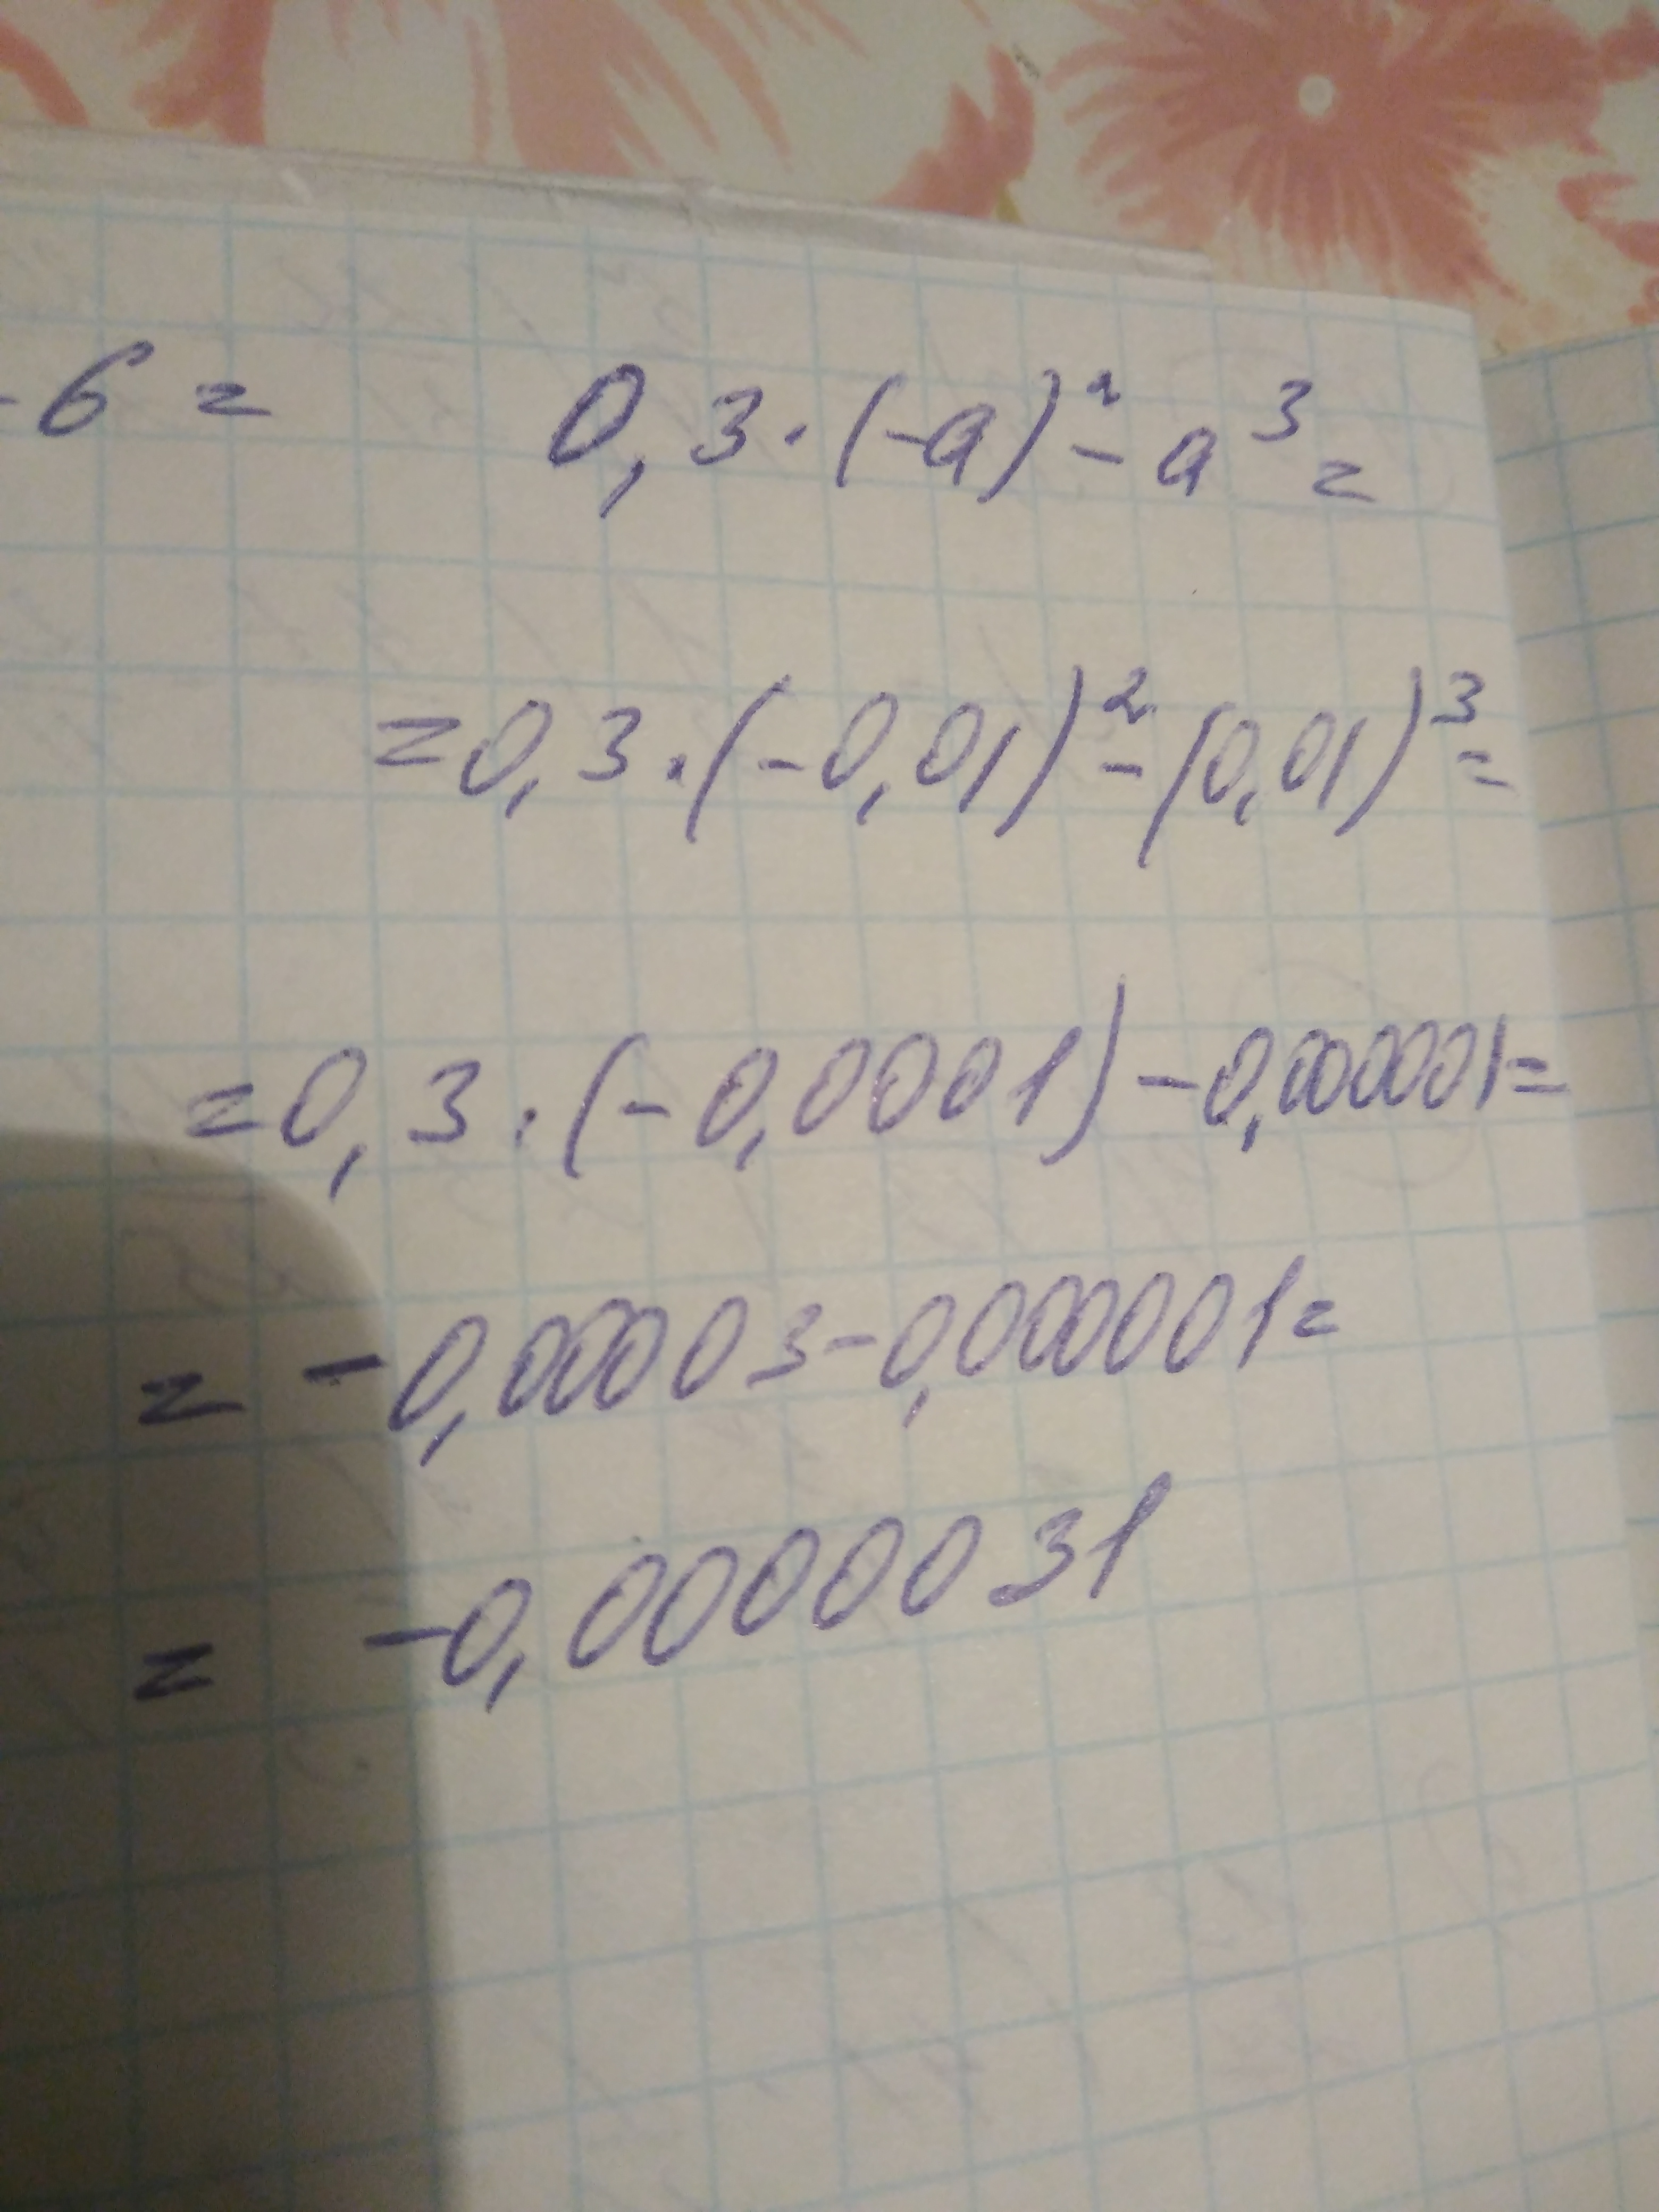 -6 = 0,3·(-a)²-a³=
=0,3·(-0,01)²-(0,01)³=
=0,3·(-0,0001)-0,000001=
= -0,00003-0,000001=
= -0,00000031